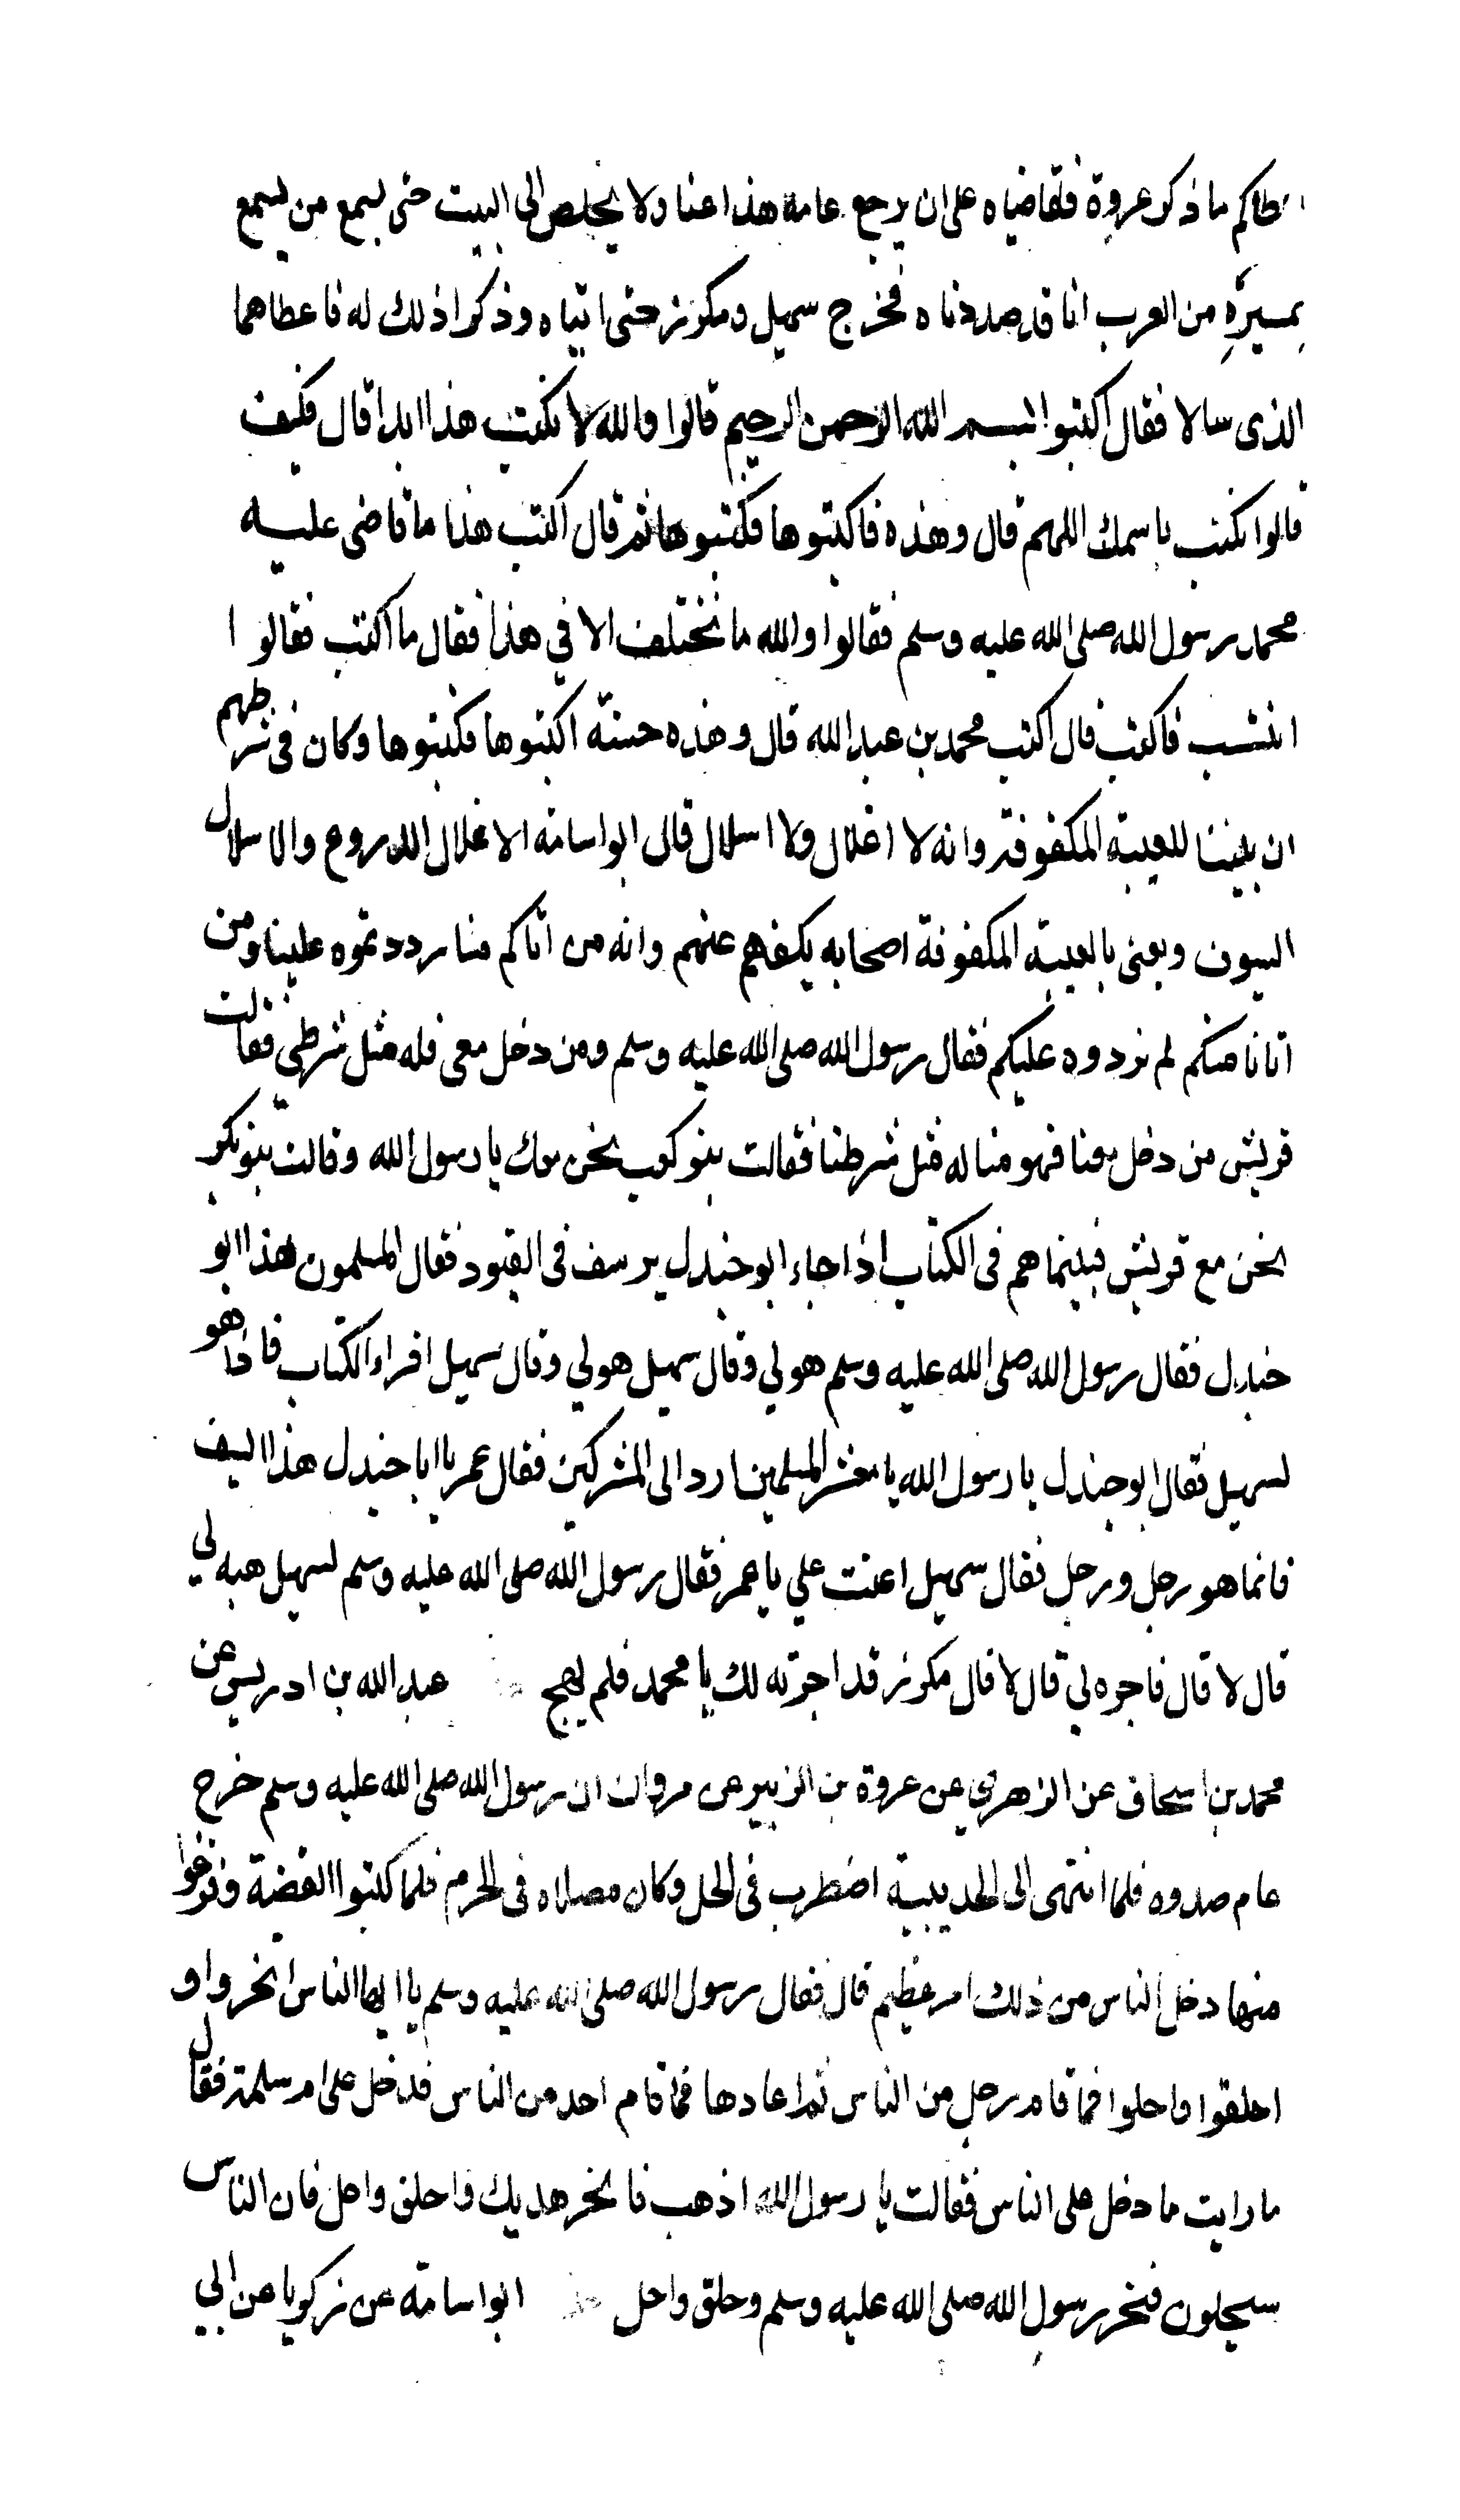 اعطاكم ما ذكر عروة فقاضياه على ان يرجع عامه هذا عنا ولا يخلص الى البيت حتى يسمع من يسمع
بمسيره من العرب انا قد صددناه فخرج سهيل ومكرز حتى اتياه وذكرا ذلك له فاعطاهما
الذى سالا فقال اكتبوا بسم الله الرحمن الرحيم قالوا والله لا نكتب هذا ابدا قال فكيف
قالوا نكتب باسمك اللهم قال وهذه فاكتبوها فكتبوها ثم قال اكتب هذا ما قاضى عليه
محمد رسول الله صلى الله عليه وسلم فقالوا والله ما نختلف الا في هذا فقال ما اكتب فقالوا
انتسب فاكتب قال اكتب محمد بن عبد الله قال وهذه حسنة اكتبوها فكتبوها وكان فى شرطهم
ان بيننا للعيبة المكفوفة وانه لا اغلال ولا اسلال قال ابو اسامة الاغلال الدروع والاسلال
السيوف ويعنى بالعيبة المكفوفة اصحابه يكفهم عنهم وانه من اتاكم منا رددتموه علينا ومن
اتانا منكم لم نردوه عليكم فقال رسول الله صلى الله عليه وسلم ومن دخل معى فله مثل شرطي فقالت
قريش من دخل معنا فهو منا له مثل شرطنا فقالت بنو كعب نحن معك يا رسول الله وقالت بنو بكر
نحن مع قريش فبينما هم فى الكتاب اذا جاء ابو جندل يرسف فى القيود فقال المسلمون هذا ابو
جندل فقال رسول الله صلى الله عليه وسلم هو لي وقال سهيل هو لي وقال سهيل اقراء الكتاب فاذا هو
لسهيل فقال ابو جندل يا رسول الله يا معشر المسلمين ارد الى المشركين فقال عمر يا ابا جندل هذا السيف
فانما هو رجل ورجل فقال سهيل اعنت علي يا عمر فقال رسول الله صلى الله عليه وسلم لسهيل هبه لي
قال لا قال فاجره لي قال لا قال مكرز قد اجرته لك يا محمد فلم يهج عبد الله بن ادريس عن
محمد بن اسحاق عن الزهري عن عروة بن الزبير عن مروان ان رسول الله صلى الله عليه وسلم خرج
عام صدوه فلما انتهى الى الحديبية اضطرب فى الحل وكان مصلاه فى الحرم فلما كتبوا القضية وفرغوا
منها دخل الناس من ذلك امر عظيم قال فقال رسول الله صلى الله عليه وسلم يا ايها الناس انحروا و
احلقوا واحلوا فما قام رجل من الناس ثم اعادها فما قام احد من الناس فدخل على ام سلمة فقال
ما رايت ما دخل على الناس فقالت يا رسول الله اذهب فانحر هديك واحلق واحل فان الناس
سيحلون فنحر رسول الله صلى الله عليه وسلم وحلق واحل ابو اسامة عن زكريا عن ابي